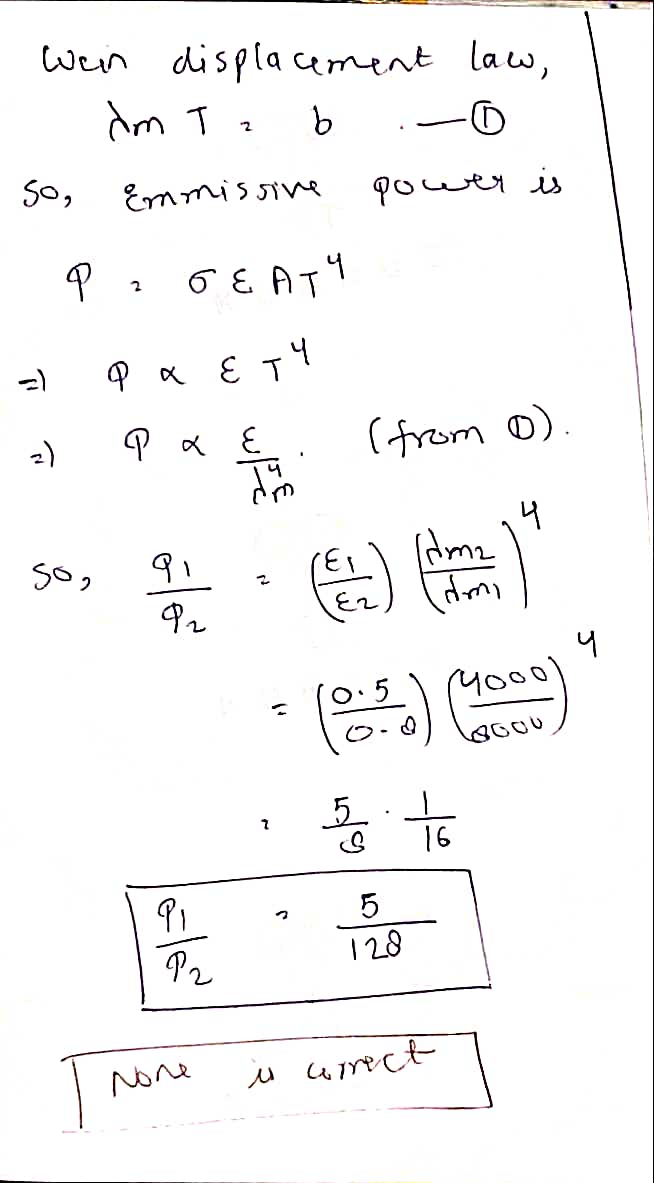 Wein displacement law,
λm T = b .—①
So, Emmissive power is
P = σ ε A T⁴
=) P α ε T⁴
=) P α ε/λm⁴ . (from ①).
So, P₁/P₂ = (ε₁/ε₂) (λm₂/λm₁)⁴
= (0.5/0.8) (4000/8000)⁴
= 5/8 · 1/16
P₁/P₂ = 5/128
None is correct